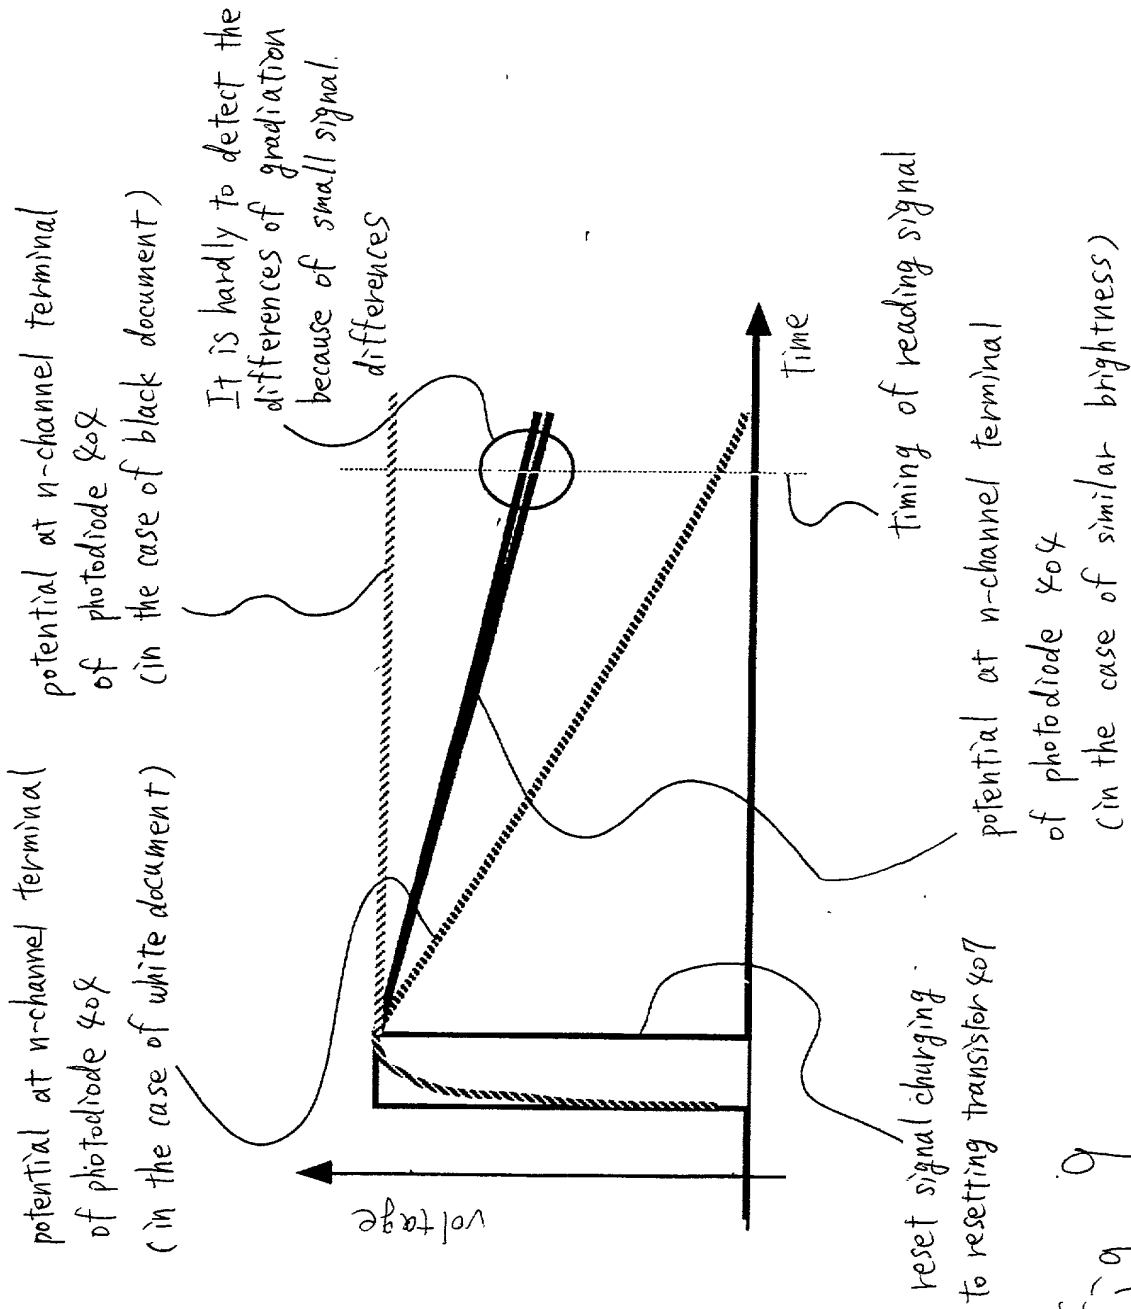 potential at n-channel terminal
of photodiode 404
(in the case of white document)
potential at n-channel terminal
of photodiode 404
(in the case of black document)
It is hardly to detect the
differences of gradiation
because of small signal
differences
voltage
Time
timing of reading signal
potential at n-channel terminal
of photodiode 404
(in the case of similar brightness)
reset signal churging
to resetting transistor 407
9